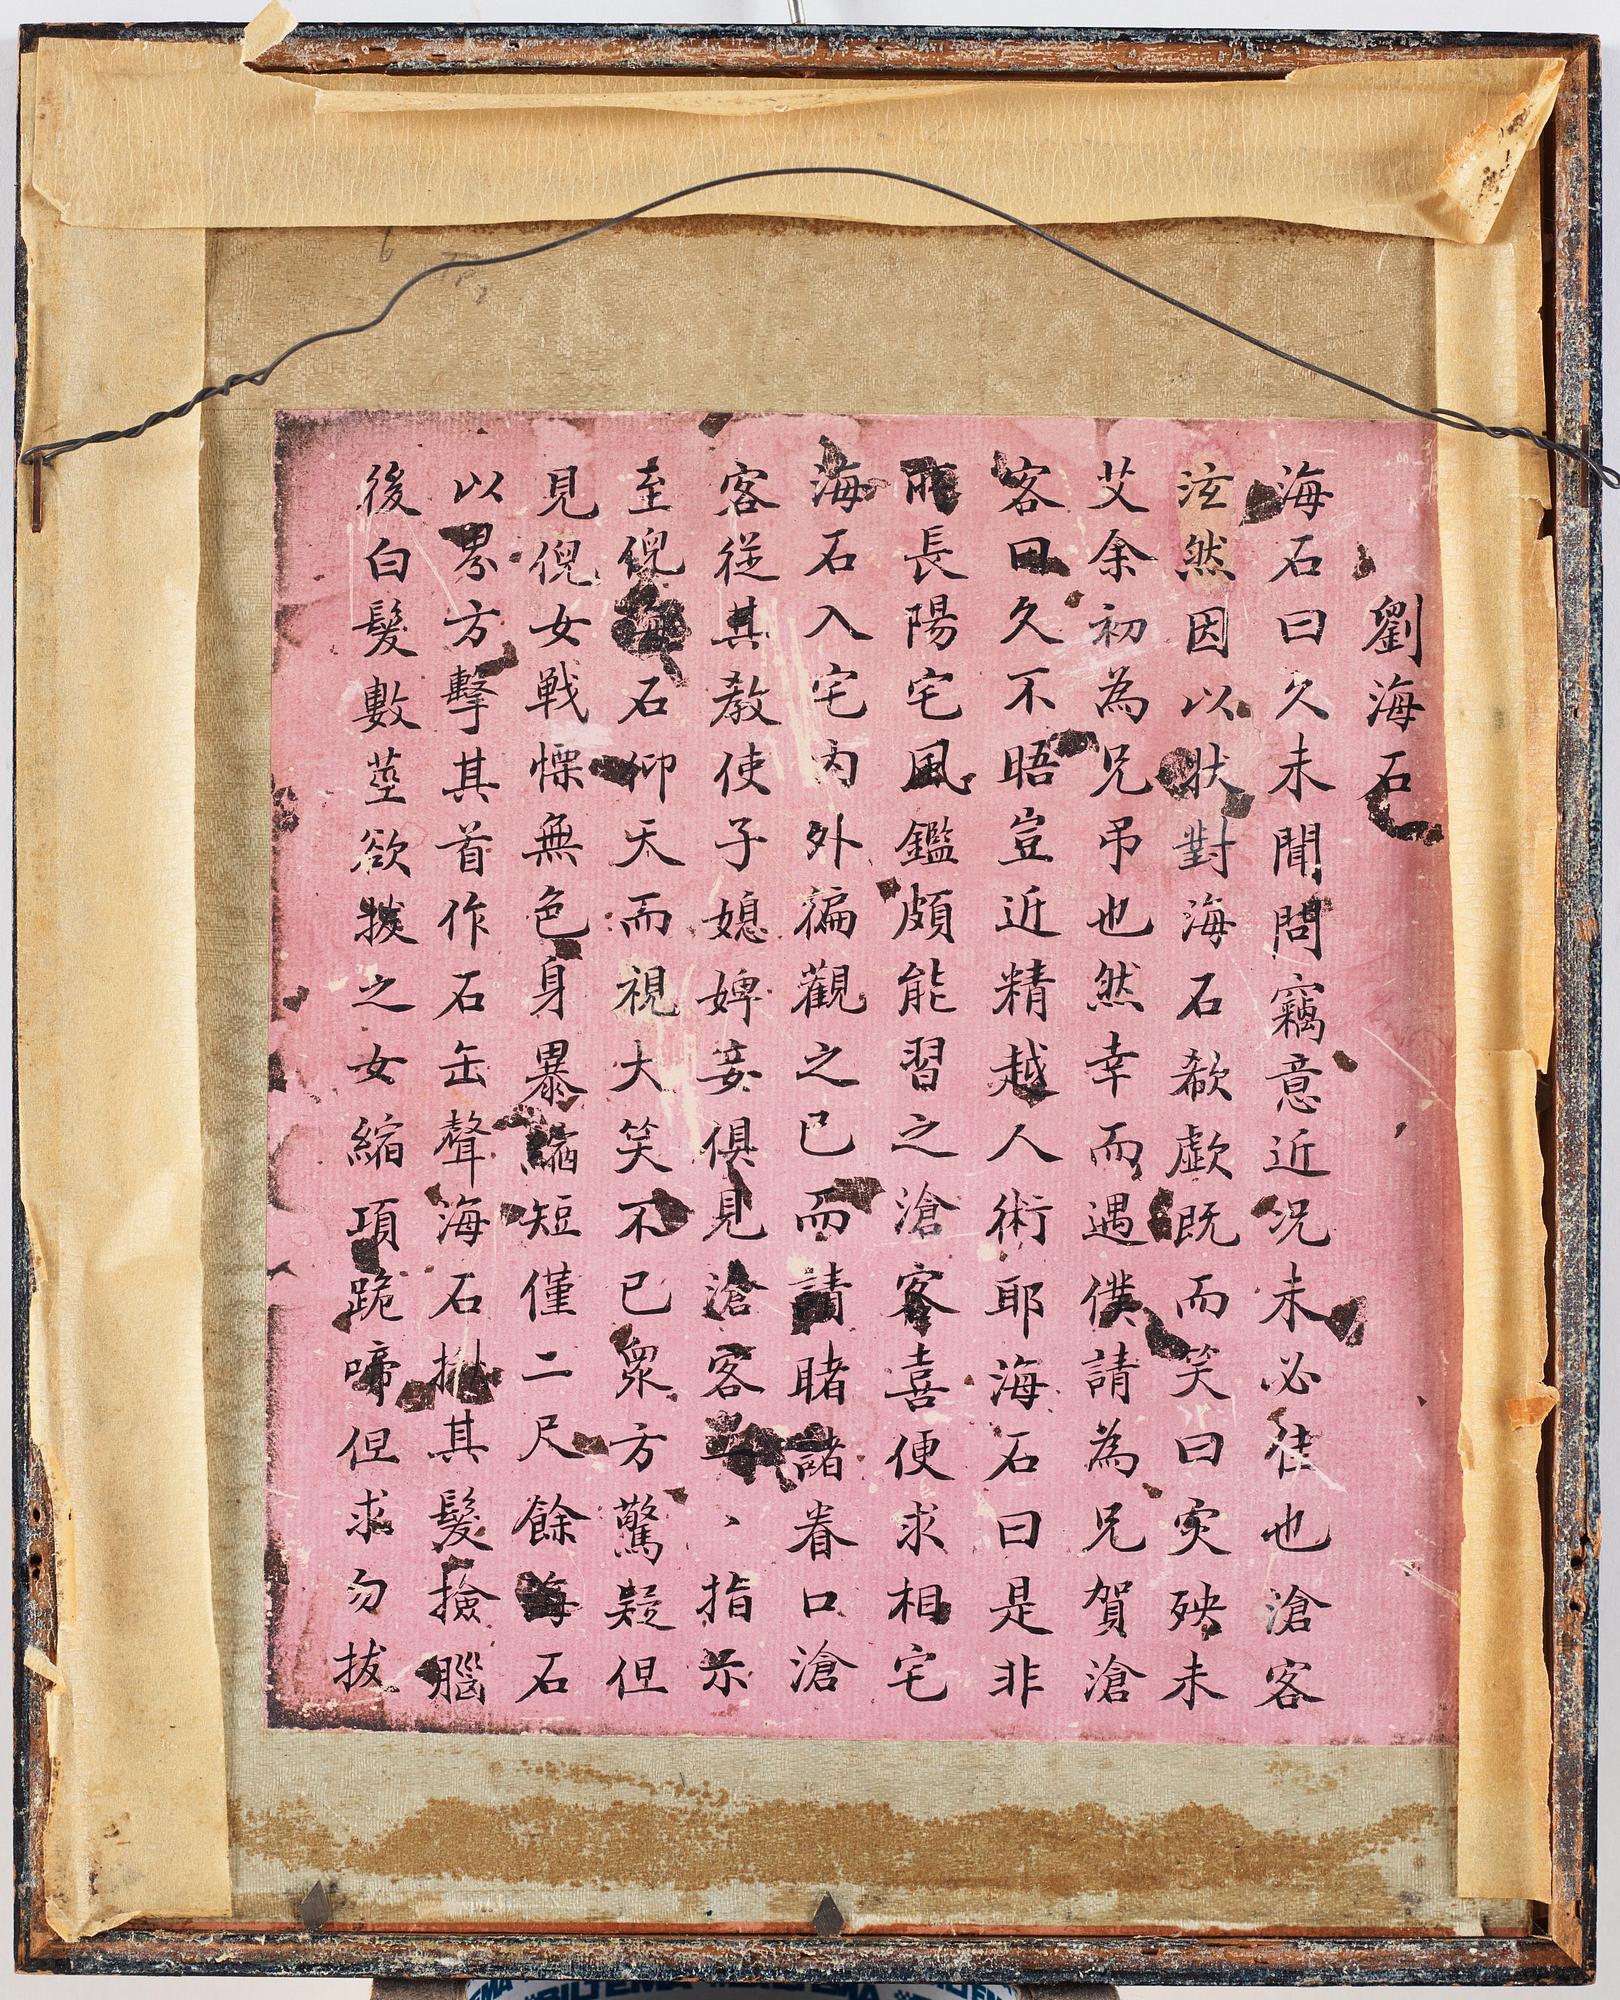 劉海石
海石曰久未聞問竊意近況未必佳也滄客
泫然因以狀對海石欷歔既而笑曰灾殃未
艾余初為兄吊也然幸而遇僕請為兄賀滄
客曰久不晤豈近精越人術耶海石曰是非
所長陽宅風鑑頗能習之滄客喜便求相宅
海石入宅內外徧觀之已而請睹諸眷口滄
客從其教使子媳婢妾俱見滄客一、指示
至倪海石仰天而視大笑不已眾方驚疑但
見倪女戰慄無色身暴縮短僅二尺餘海石
以界方擊其首作石缶聲海石揪其髮撿腦
後白髮數莖欲拔之女縮項跪啼但求勿拔